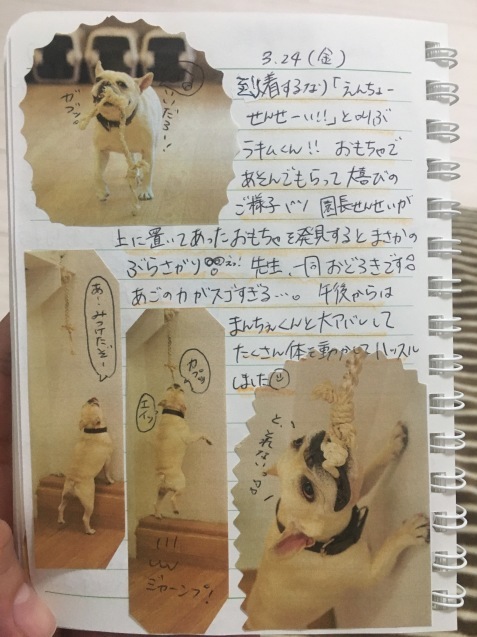 3.24(金)
到着するなり「えんちょー
せんせーい!!」と叫ぶ
ラキムくん!! おもちゃで
あそんでもらって大喜びの
ご様子 園長せんせいが
上に置いてあったおもちゃを発見するとまさかの
ぶらさがり えっ! 先生一同おどろきです。
あごの力がスゴすぎる…。 午後からは
まんちぇくんと大アバレして
たくさん体を動かしてハッスル
しました
いいだろー!!
ガブッ。
あ、みつけたぞー
カプッ
エイッ
ジャーンプ!
と、
れないっ